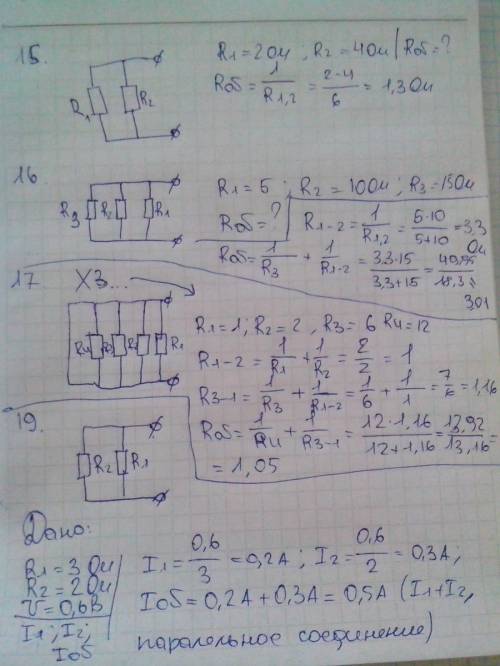 15.
R1 = 2Ом ; R2 = 4Ом | Rоб = ?
Rоб = 1/R1,2 = 2·4/6 = 1,3Ом
R1 R2
16
R1 = 5 ; R2 = 10Ом ; R3 = 15Ом
Rоб = ?
R1-2 = 1/R1,2 = 5·10/5+10 = 3,3 Ом
Rоб = 1/R3 + 1/R1-2 = 3,3·15/3,3+15 =
3,01
R3 R2 R1
17 ХЗ...
R1 = 1 ; R2 = 2 , R3 = 6 R4 = 12
R1-2 = 1/R1 + 1/R2 = 2/2 = 1
R3-1 = 1/R3 + 1/R1-2 = 1/6 + 1/1 = 7/6 = 1,16
Rоб = 1/R4 + 1/R3-1 = 12·1,16/12+1,16 = 13,92/13,16 =
= 1,05
R4 R1
19.
R2 R1
Дано:
R1 = 3 Ом
R2 = 2 Ом
U = 0,6В
I1 ; I2;
Iоб
I1 = 0,6/3 = 0,2А ; I2 = 0,6/2 = 0,3А;
Iоб = 0,2А + 0,3А = 0,5А (I1+I2,
паралельное соединение)